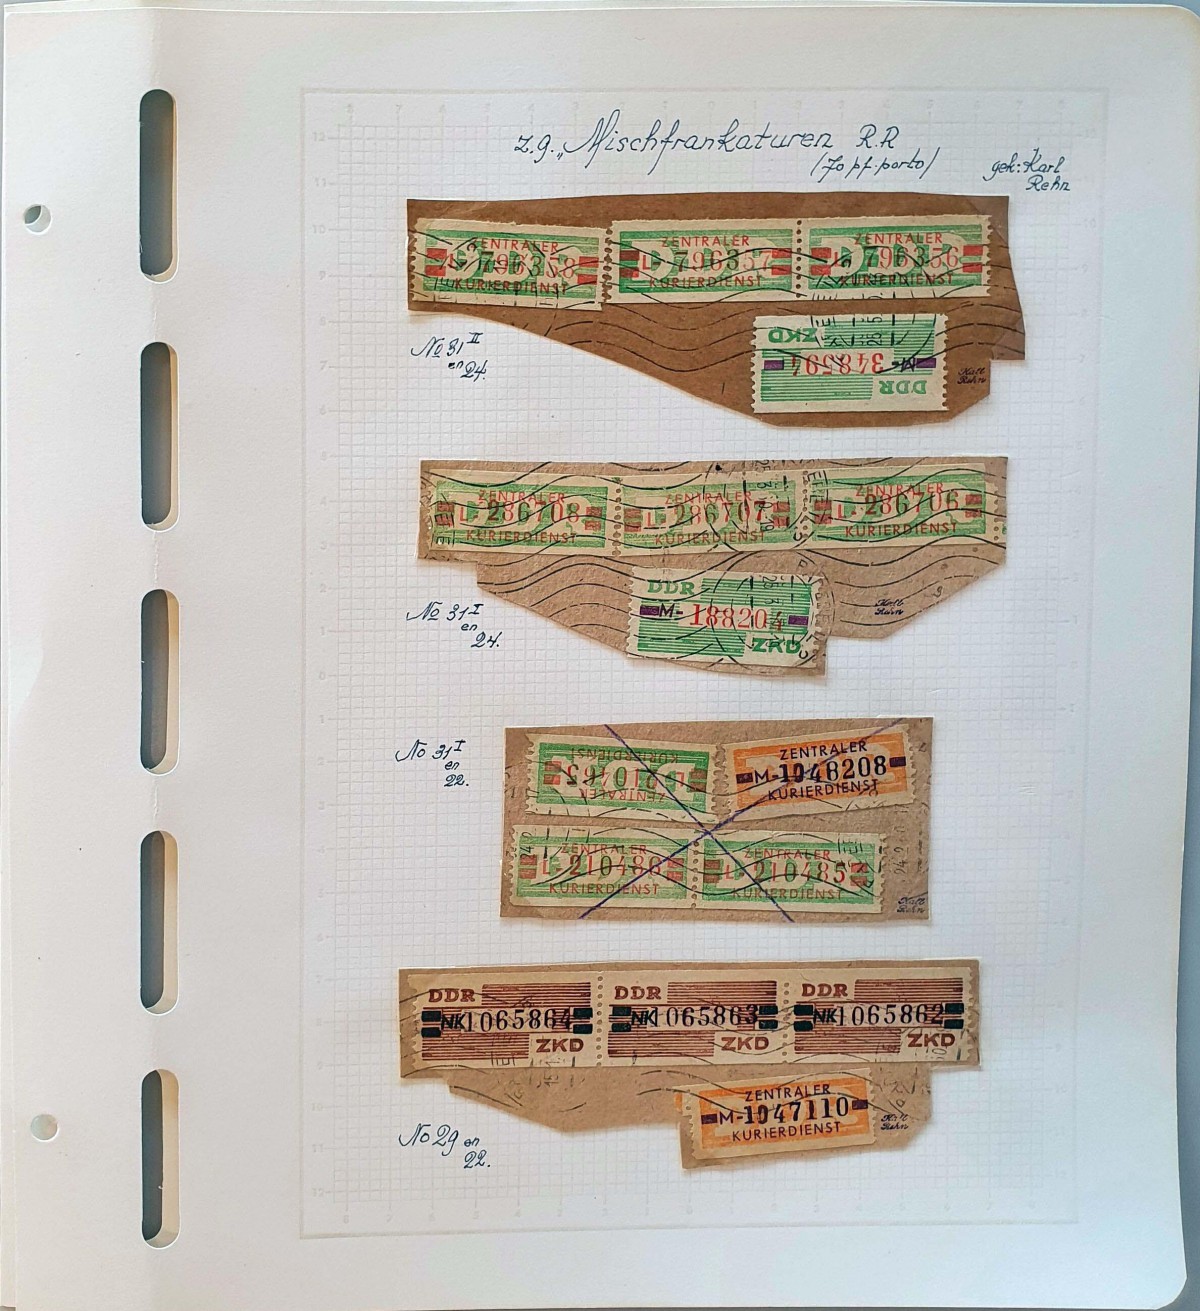 z.g. „Mischfrankaturen R.R
(70 pf. porto)
gek: Karl
Rehn
ZENTRALER ZENTRALER ZENTRALER
L-796358 L-796357 L-796356
KURIERDIENST KURIERDIENST KURIERDIENST
No 31 II
en
24.
DDR
M-348594
ZKD
Karl
Rehn
ZENTRALER ZENTRALER ZENTRALER
L-286708 L-286707 L-286706
KURIERDIENST KURIERDIENST KURIERDIENST
No 31 I
en
24.
DDR
M-18820
ZKD
Karl
Rehn
No 31 I
en
22.
ZENTRALER
KURIERDIENST
ZENTRALER
M-1046208
KURIERDIENST
ZENTRALER ZENTRALER
L-210486 L-210485
KURIERDIENST KURIERDIENST
24.2.
Karl
Rehn
DDR DDR DDR
NK1065864 NK1065863 NK1065862
ZKD ZKD ZKD
No 29 en
22.
ZENTRALER
M-1047110
KURIERDIENST
Karl
Rehn